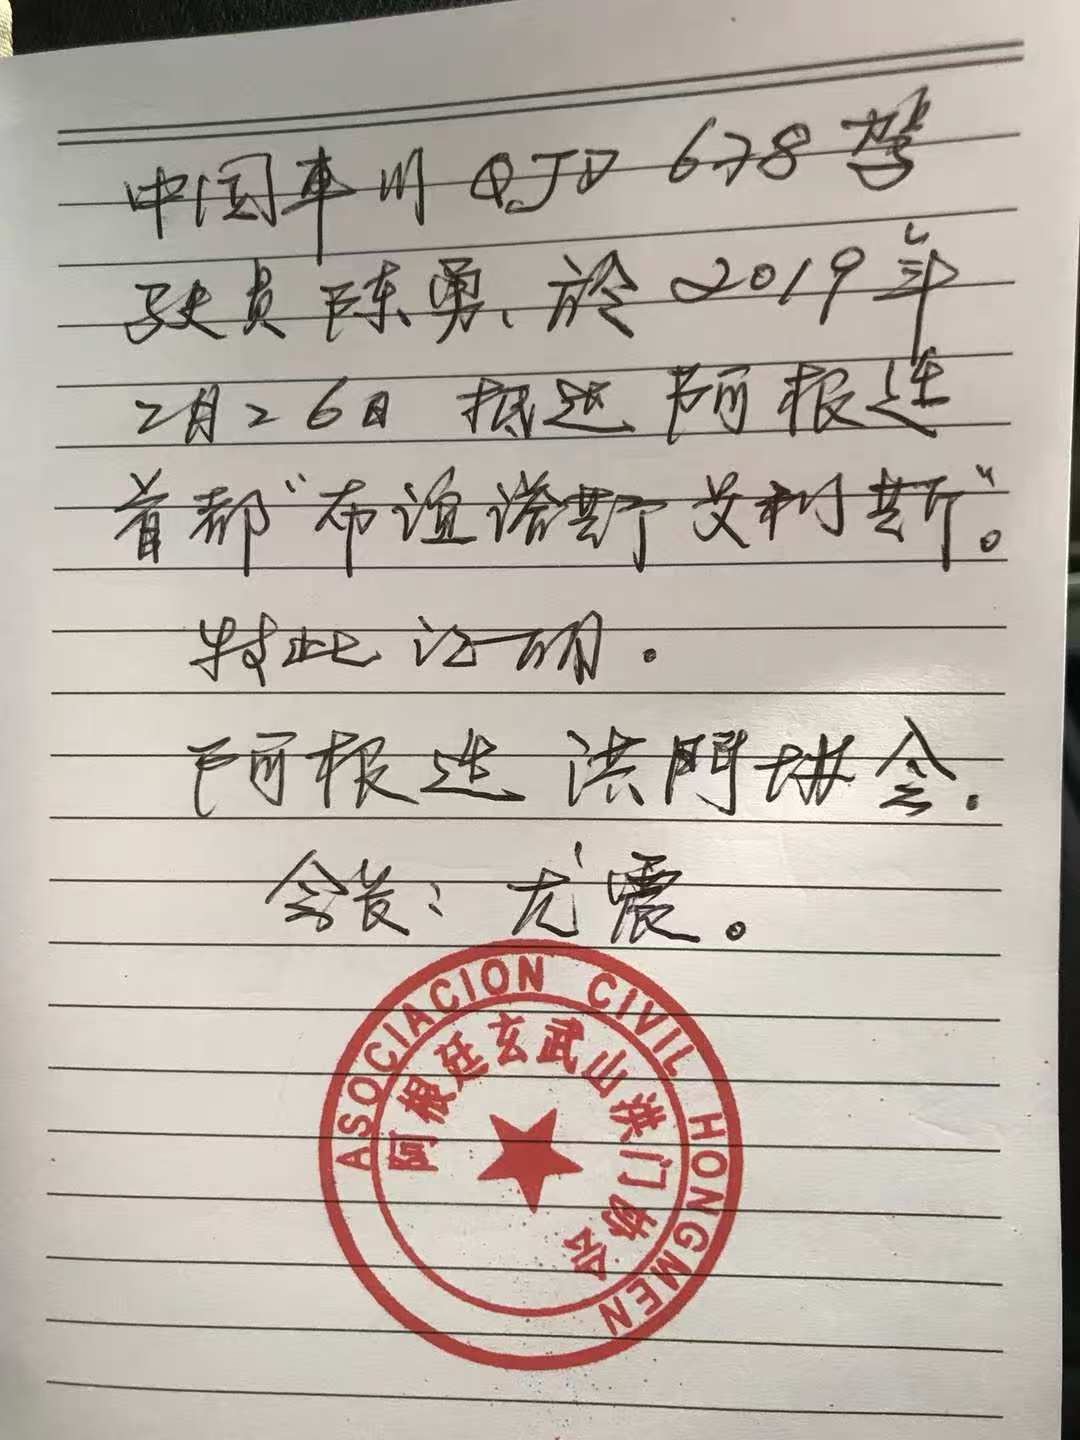 中国車川QJD 678 驾
驶员陈勇、於2019年
2月26日 抵达 阿根廷
首都“布谊诺斯艾利斯”。
特此证明.
阿根廷 洪門协会.
会长：尤震。
ASOCIACION CIVIL HONGMEN
阿根廷玄武山洪门协会